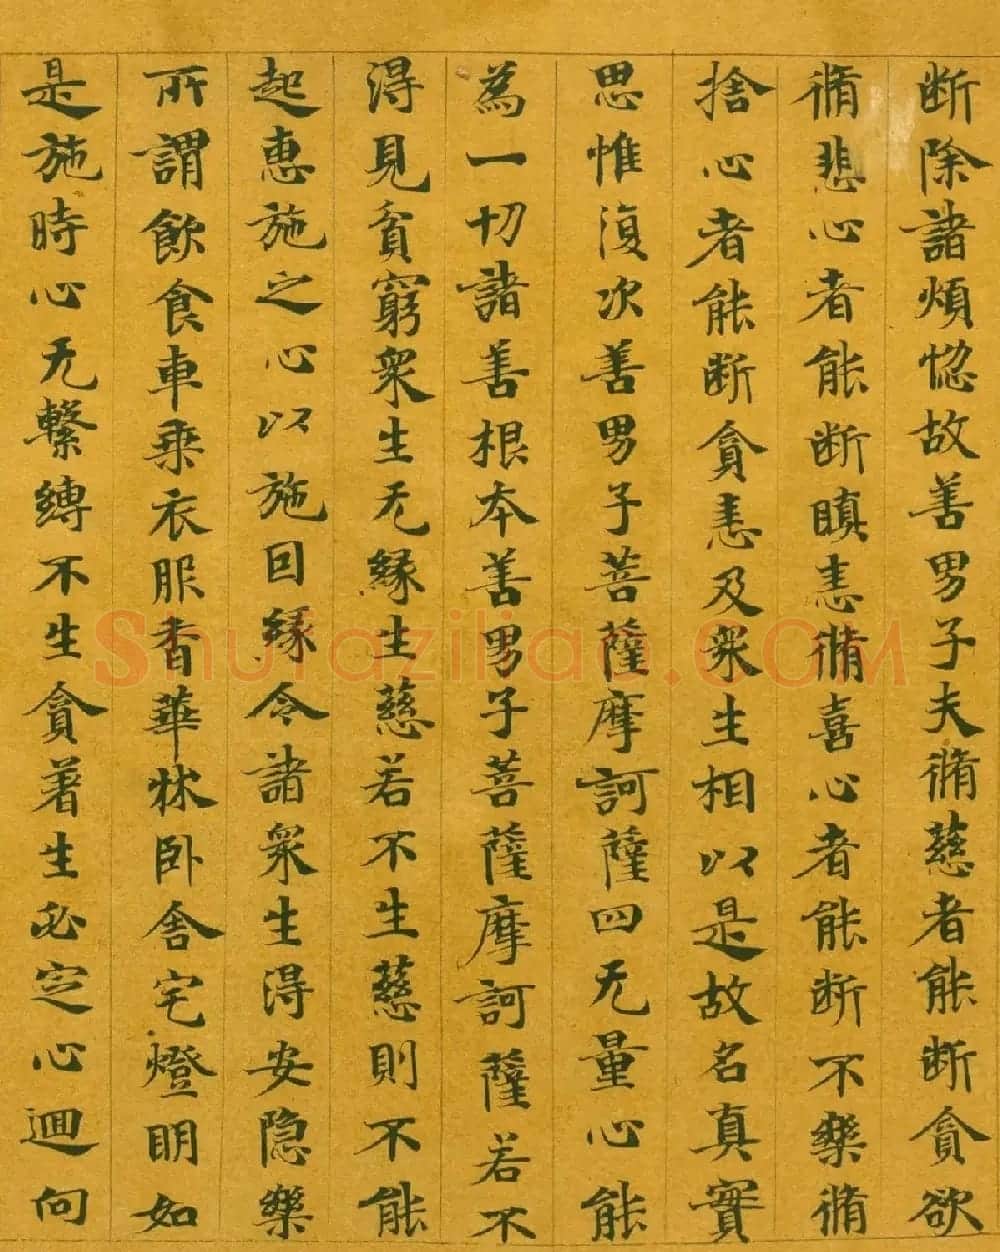 断除諸煩惚故善男子夫脩慈者能断貪欲
脩悲心者能断瞋恚脩喜心者能断不樂脩
捨心者能断貪恚及衆生相以是故名真實
思惟復次善男子菩薩摩訶薩四无量心能
為一切諸善根本善男子菩薩摩訶薩若不
得見貧窮衆生无緣生慈若不生慈則不能
起惠施之心以施因緣令諸衆生得安隱樂
所謂飲食車乘衣服香華牀卧舍宅燈明如
是施時心无繫縛不生貪著生必定心迴向
Shufaziliao.COM